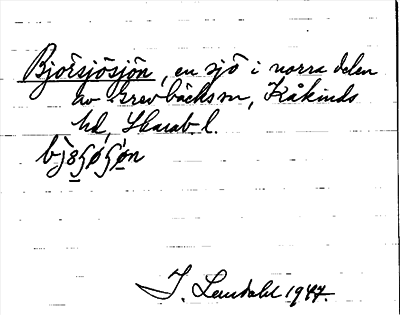 Bjorsjösjön, en sjö i norra delen
av Grevbäcks sn, Kåkinds
hd, Skarab. l.
J. Lundahl 1947.